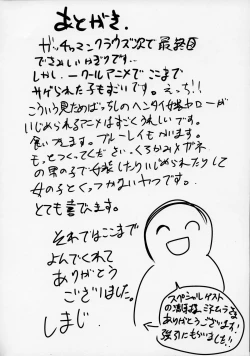 あとがき.
ガッチャマンクラウズ次で最終回
できみしいかぎりです…
しかし、一クールアニメでここまで
サゲられた子もすごいです。えっち!!
こういう見ためばっちしのヘンタイ女装ヤローが
いじめられるアニメはすごくうれしいです。
食いつきます。ブルーレイもかいます。
もっとつくってください。くろかみメガネ
の男の子で女装したりいじめられたりして
女の子とくっつかないヤツです。
とても喜びます。
それではここまで
よんでくれて
ありがとう
ございました。
しまじ.
スペシャルゲスト
ありがとうございます!
強引にもらいました!!